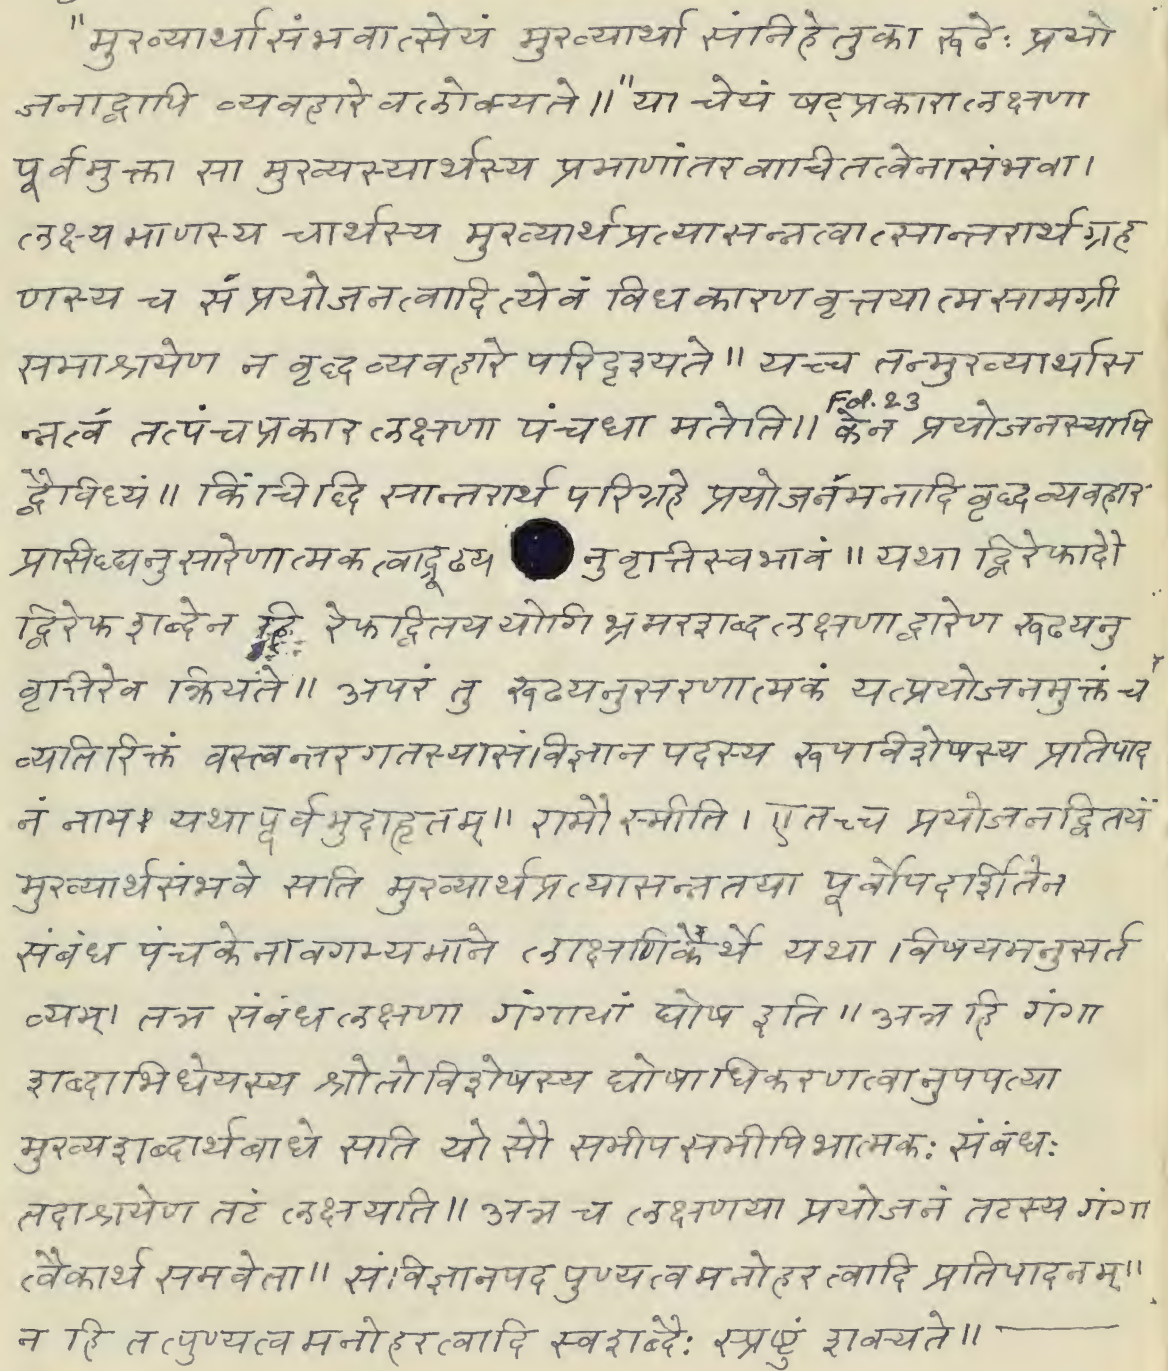 "मुख्यार्थासंभवात्सेयं मुख्यार्था संनिहेतुका रूढेः प्रयो
जनाद्वापि व्यवहारे वलोक्यते॥" या चेयं षट्प्रकारालक्षणा
पूर्वमुक्ता सा मुख्यस्यार्थस्य प्रमाणांतर वाधितत्वेनासंभवा।
लक्ष्यमाणस्य चार्थस्य मुख्यार्थप्रत्यासन्नत्वात्सान्तरार्थग्रह
णस्य च सं प्रयोजनत्वादित्येवं विधकारणवृत्तयात्मसामग्री
समाश्रायेण न वृद्धव्यवहारे परिदृश्यते॥ यच्च तन्मुख्यार्थास
Fol. 23
न्नत्वं तत्पंचप्रकार लक्षणा पंचधा मतेति॥ केन प्रयोजनस्यापि
द्वैविध्यं॥ किंचिद्धि सान्तरार्थ परिग्रहे प्रयोजनंमनादि वृद्धव्यवहार
प्रासिध्द्यनुसारेणात्मकत्वाद्रूढय नुवृत्तिस्वभावं॥ यथा द्विरेफादौ
द्विरेफशब्देन हि रेफद्वितययोगि भ्रमरशब्दलक्षणाद्वारेण रूढयनु
वृत्तिरेव क्रियते॥ अपरं तु रूढयनुसरणात्मकं यत्प्रयोजनमुक्तं च
व्यतिरिक्तं वस्त्वन्तरगतस्यासंविज्ञान पदस्य रूपविशेषस्य प्रतिपाद
नं नाम। यथापूर्वमुदाहृतम्॥ रामोस्मीति। एतच्च प्रयोजनद्वितयं
मुख्यार्थसंभवे सति मुख्यार्थप्रत्यासन्नतया पूर्वोपदर्शितेन
संबंध पंचकेनावगम्यमाने लाक्षणिकेर्थे यथा विषयमनुसर्त
व्यम्। तत्र संबंधलक्षणा गंगायां घोष इति॥ अत्र हि गंगा
शब्दाभिधेयस्य श्रोतोविशेषस्य घोषाधिकरणत्वानुपपत्या
मुख्यशब्दार्थबाधे सति यो सौ समीपसमीपिभात्मकः संबंधः
तदाश्रायेण तटं लक्षयति॥ अत्र च लक्षणया प्रयोजनं तटस्य गंगा
त्वैकार्थ समवेता॥ संविज्ञानपद पुण्यत्वमनोहरत्वादि प्रतिपादनम्॥
न हि तत्पुण्यत्व मनोहरत्वादि स्वशब्दैः स्प्रष्टुं शक्यते॥